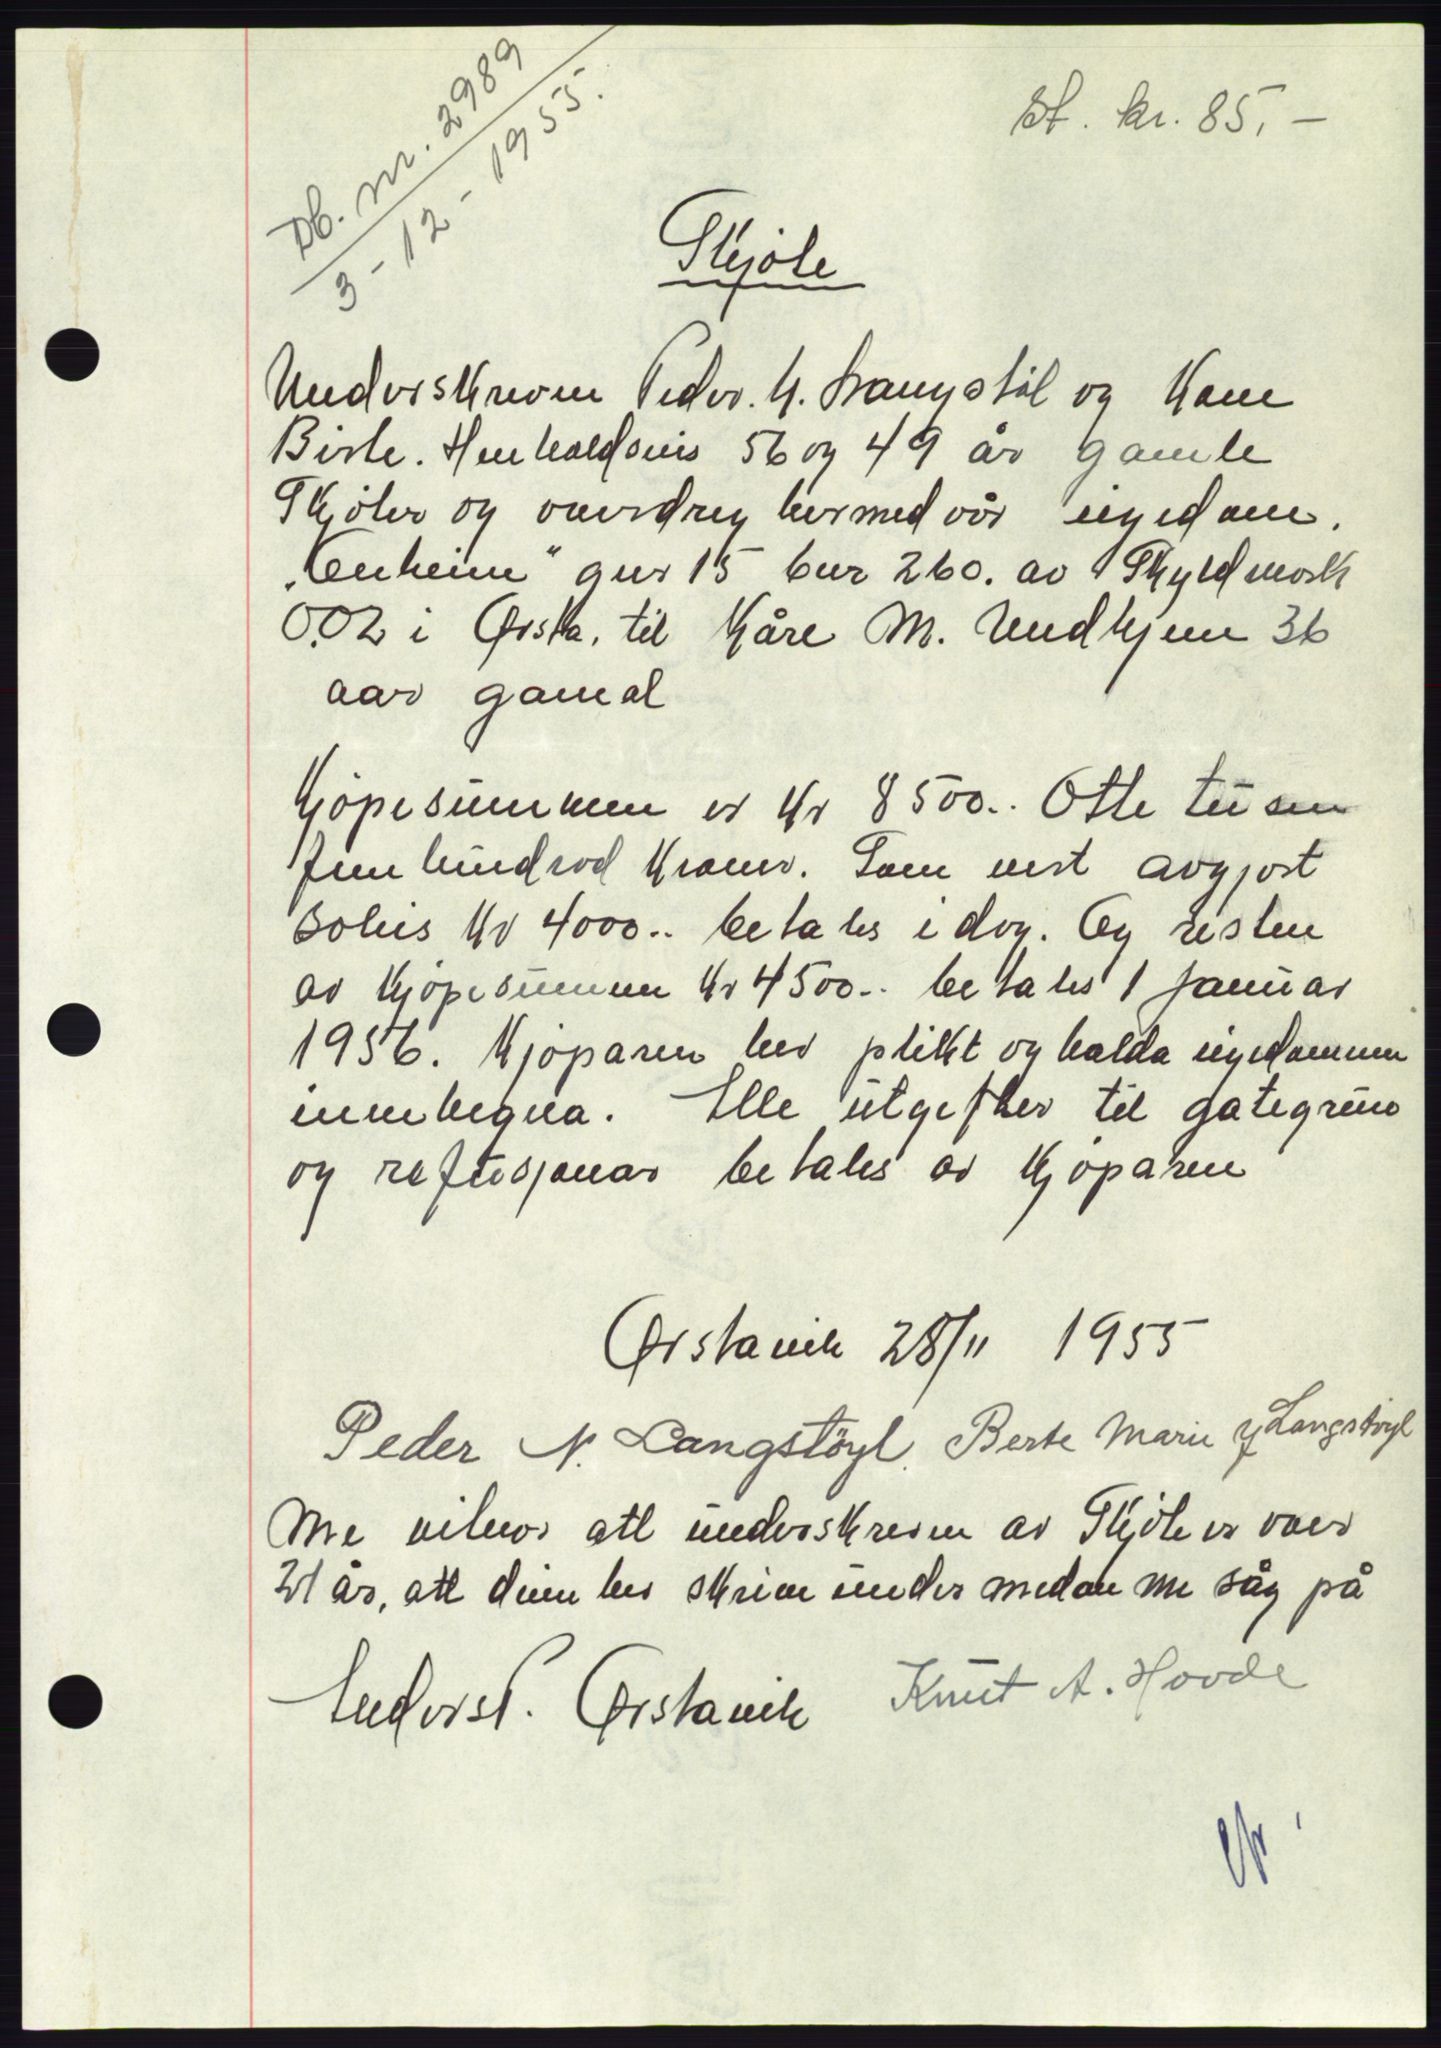 Db. nr. 2989
3-12-1955.
St. kr. 85,-
Skjøte
Underskreven Peder. N. Langstøl og Kone
Birte. Henholdsvis 56 og 49 år gamle
Skjøter og overdreg hermed vår eigedom.
"Enheim" gnr 15 bnr 260. av Skyldmark
0.02 i Ørsta. til Kåre M. Undhjem 36
aar gamal
Kjøpesummen er Kr 8500.. Otte tusen
fem hundrod Kroner. Som vert avgjort
soleis Kr 4000.. betales idag. Og resten
av Kjøpesummen Kr 4500.. betales 1 Januar
1956. Kjøparen hev plikt og halda eigedommen
innhegna. Elle utgifter til gategrunn
og refusjonar betales av Kjøparen
Ørstavik 28/11 1955
Peder N. Langstöyl. Berte Marie Langstöyl
Me vitnar att underskreven av Skjøte er over
21 år, att deim hev skrive under medan me såg på
Ørstavik Knut A. Hovde